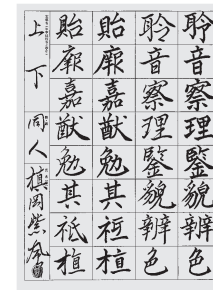 聆音察理鑒貌辨色
聆音察理鑒貌辨色
貽厥嘉猷勉其祗植
貽厥嘉猷勉其祗植
上下
同人